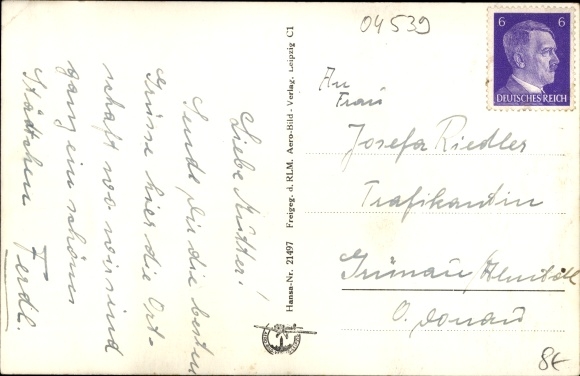 04539
6 6
DEUTSCHES REICH
An
Frau
Josefa Riedler
Trafikantin
Grünau/Almtal
O. Donau
Liebe Mutter!
Sende dir die besten
Grüsse hier die Ort-
schaft wo wir sind
ganz ein schönes
Städtchen Ferdl.
Hansa-Nr. 21497 Freigeg. d. RLM. Aero-Bild-Verlag, Leipzig C1
8€